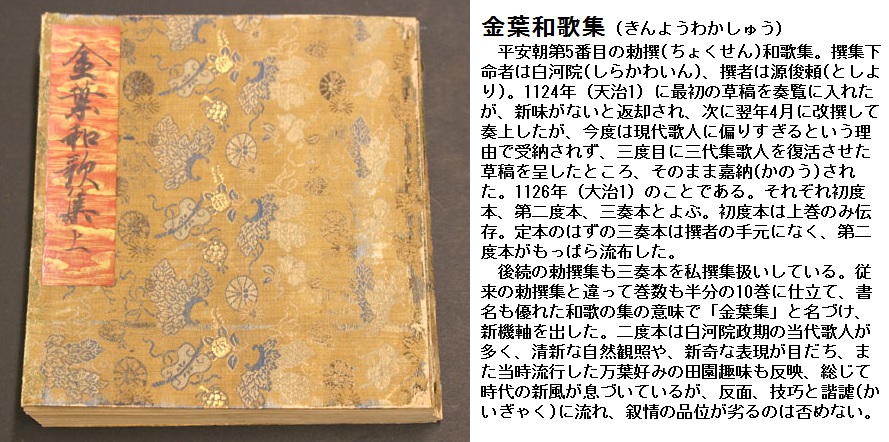 金葉和歌集 上
金葉和歌集 (きんようわかしゅう)
　平安朝第5番目の勅撰(ちょくせん)和歌集。撰集下
命者は白河院(しらかわいん)、撰者は源俊頼(としよ
り)。1124年（天治1）に最初の草稿を奏覧に入れた
が、新味がないと返却され、次に翌年4月に改撰して
奏上したが、今度は現代歌人に偏りすぎるという理
由で受納されず、三度目に三代集歌人を復活させた
草稿を呈したところ、そのまま嘉納(かのう)され
た。1126年（大治1）のことである。それぞれ初度
本、第二度本、三奏本とよぶ。初度本は上巻のみ伝
存。定本のはずの三奏本は撰者の手元になく、第二
度本がもっぱら流布した。
　後続の勅撰集も三奏本を私撰集扱いしている。従
来の勅撰集と違って巻数も半分の10巻に仕立て、書
名も優れた和歌の集の意味で「金葉集」と名づけ、
新機軸を出した。二度本は白河院政期の当代歌人が
多く、清新な自然観照や、新奇な表現が目だち、ま
た当時流行した万葉好みの田園趣味も反映、総じて
時代の新風が息づいているが、反面、技巧と諧謔(か
いぎゃく)に流れ、叙情の品位が劣るのは否めない。